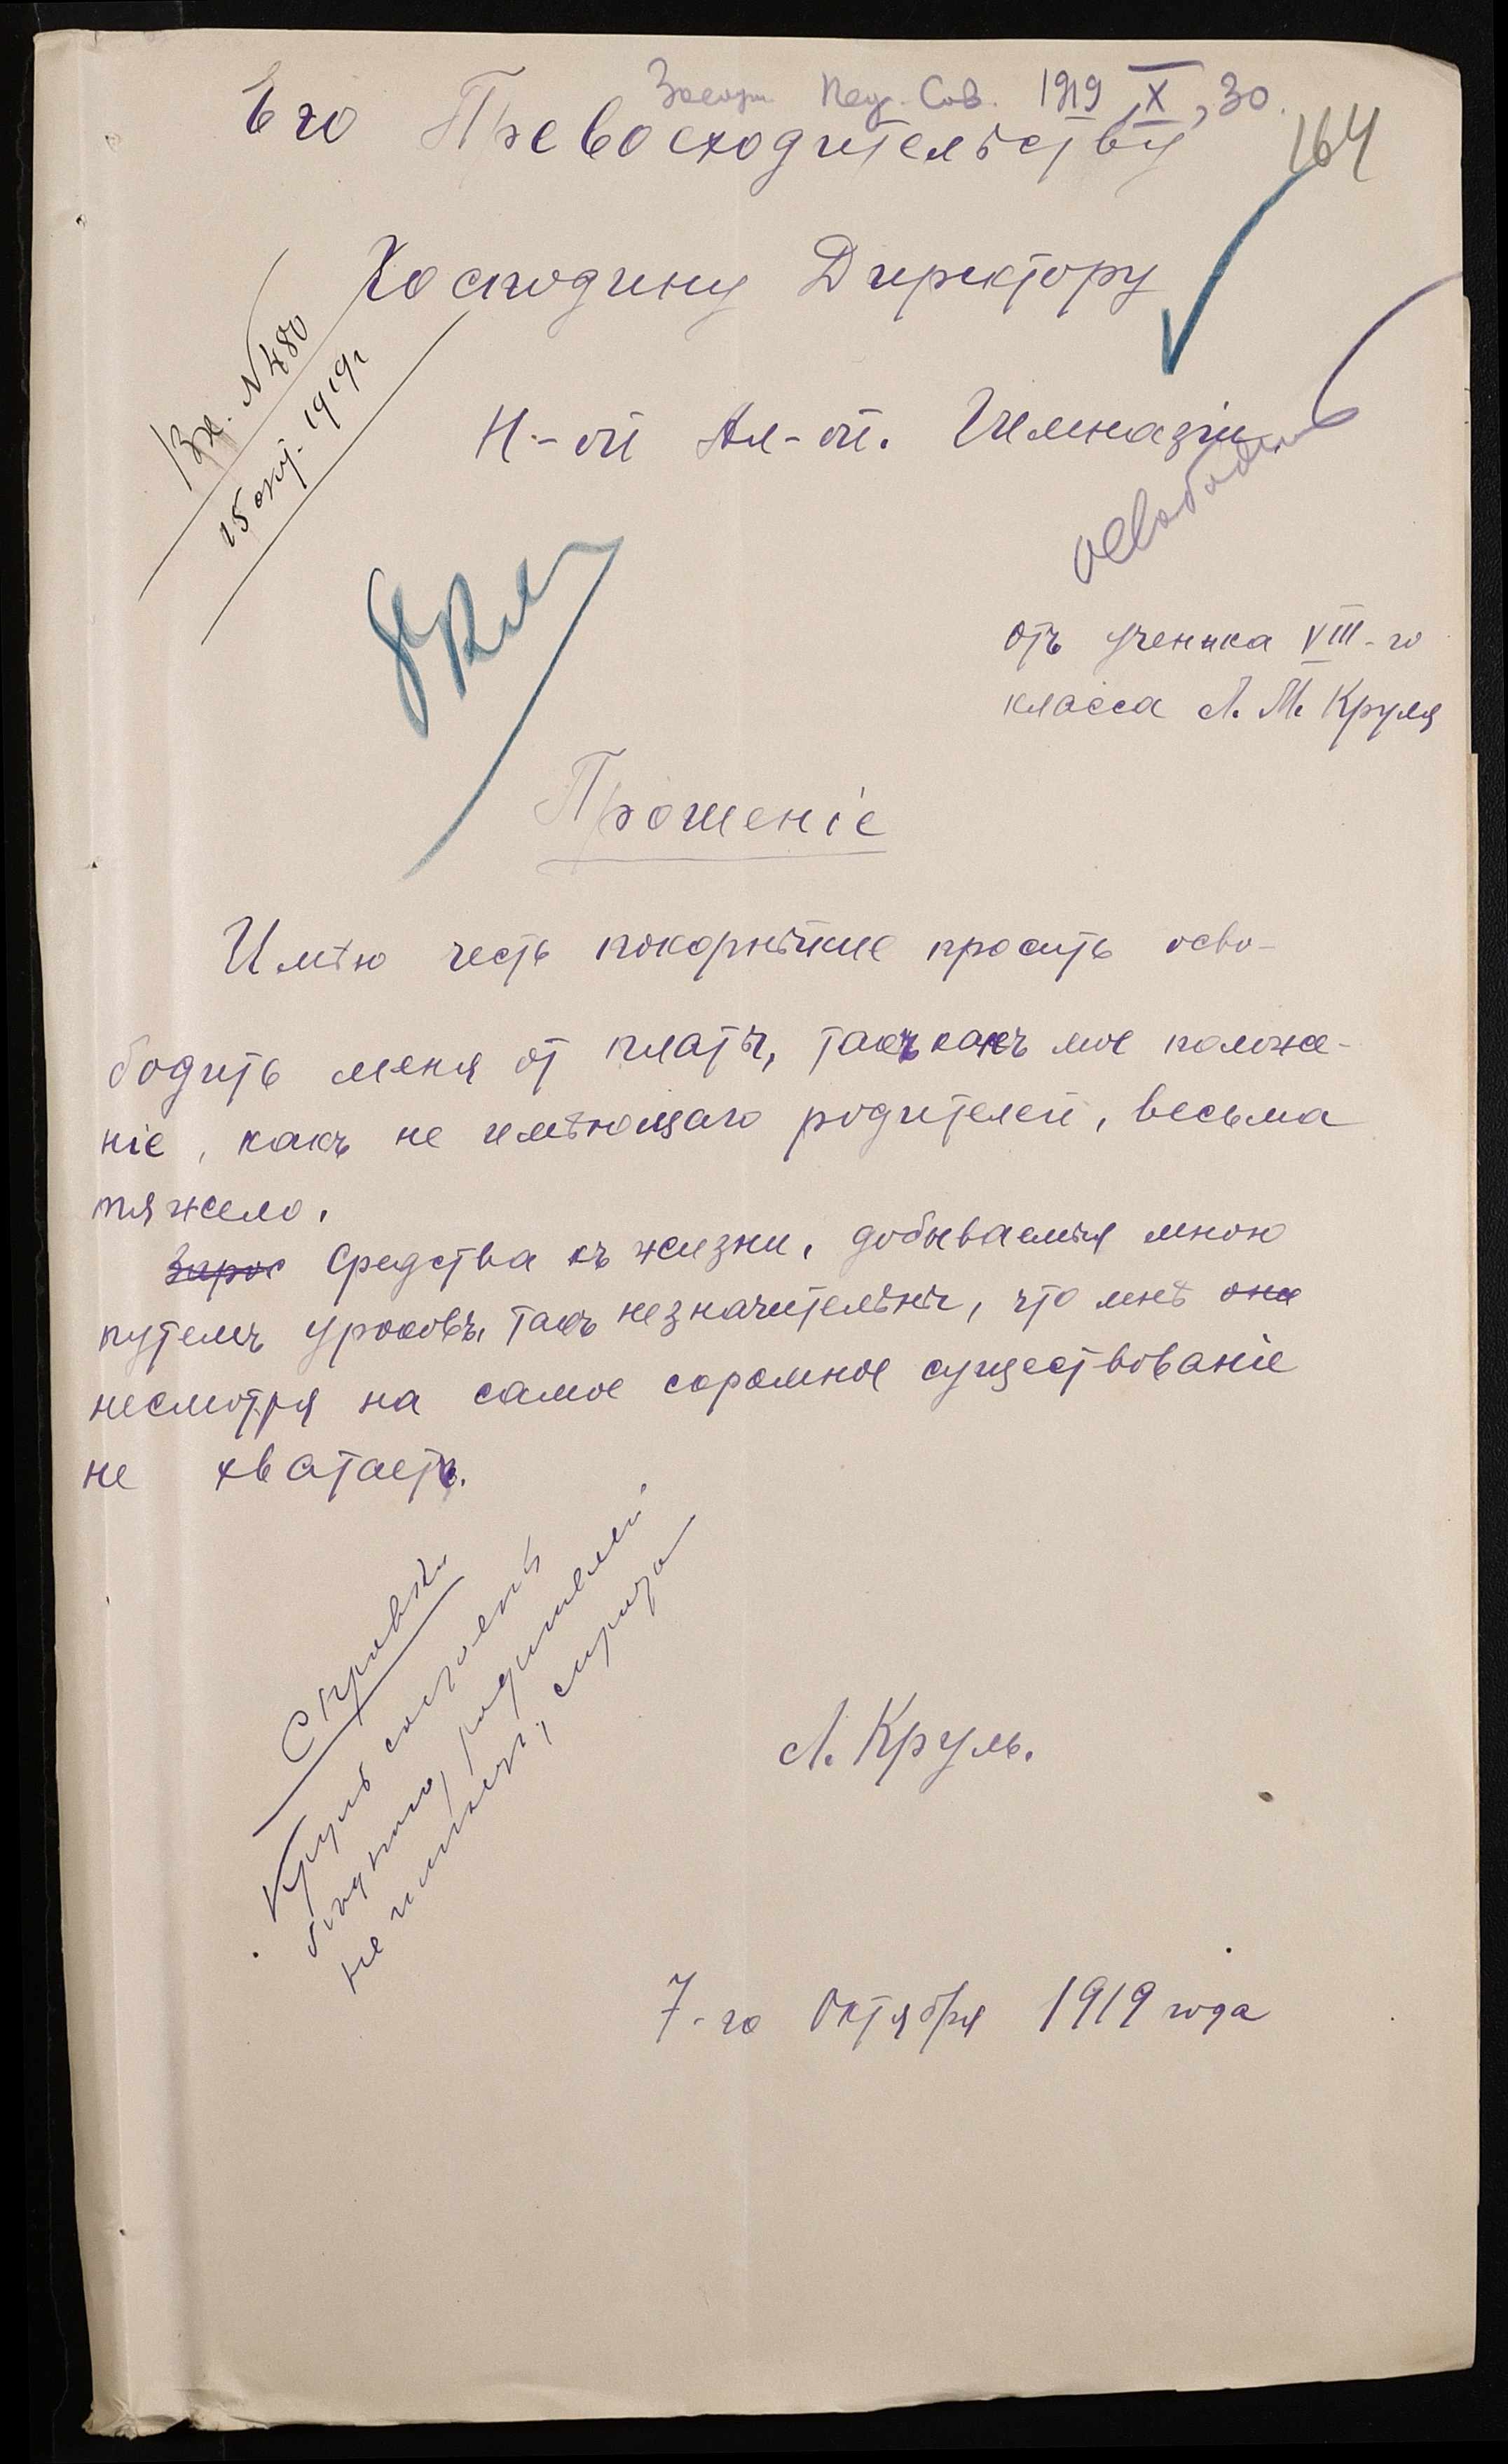 Засѣд. Пед. Сов. 1919 X, 30.
164
Его Превосходительству
Господину Директору
Н-ой Ал-ой. Гимназіи
Вх. N 480
15 окт. 1919 г
освободить
8 кл
отъ ученика VIII-го
класса Л. М. Круля
Прошеніе
Имѣю честь покорнѣйше просить осво-
бодить меня от платы, такъ какъ мое положе-
ніе, какъ не имѣющаго родителей, весьма
тяжело.
Зарос Средства къ жизни, добываемыя мною
путемъ уроковъ, такъ незначительны, что мнѣ они
несмотря на самое скромное существованіе
не хватаетъ.
Справка
Круль
родителей
не имѣетъ, сирота
Л. Круль.
7-го Октября 1919 года